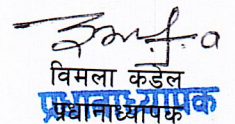 विमला कंडेल
प्रधानाध्यापक
प्रधानाध्यापक